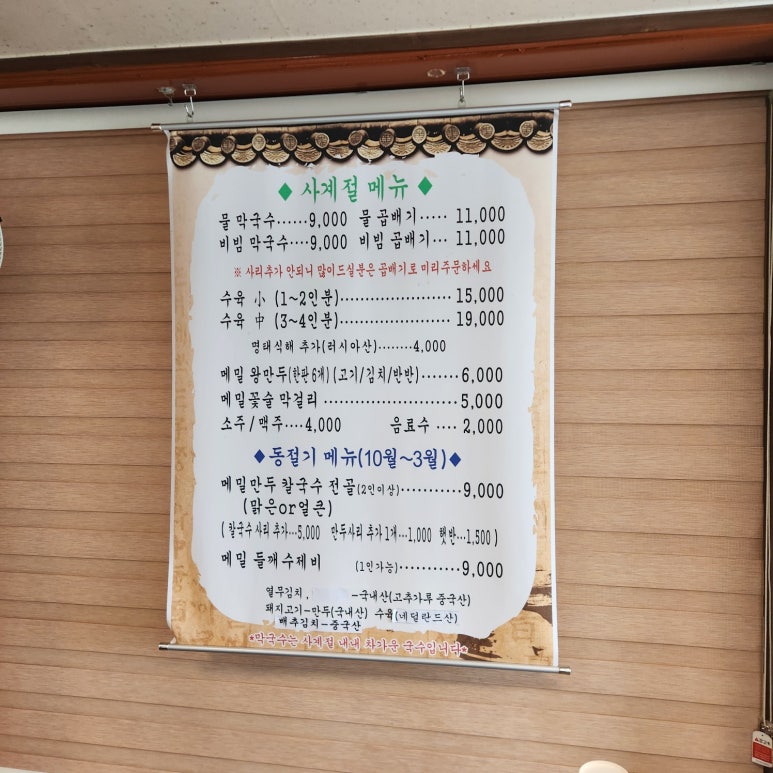 ◆ 사계절 메뉴 ◆
물 막국수······9,000 물 곱배기····· 11,000
비빔 막국수····9,000 비빔 곱배기··· 11,000
※ 사리추가 안되니 많이드실분은 곱배기로 미리주문하세요
수육 小 (1~2인분)······················ 15,000
수육 中 (3~4인분)······················ 19,000
명태식해 추가(러시아산)········4,000
메밀 왕만두(한판 6개) (고기/김치/반반)·······6,000
메밀꽃술 막걸리 ·························5,000
소주/맥주····4,000 음료수 ···· 2,000
◆동절기 메뉴(10월~3월)◆
메밀만두 칼국수 전골(2인이상)···········9,000
(맑은or얼큰)
( 칼국수사리 추가···5,000 만두사리 추가 1개···1,000 햇반···1,500 )
메밀 들깨 수제비 (1인가능)···········9,000
열무김치, -국내산(고추가루 중국산)
돼지고기-만두(국내산) 수육(네덜란드산)
배추김치-중국산
*막국수는 사계절 내내 차가운 국수입니다*